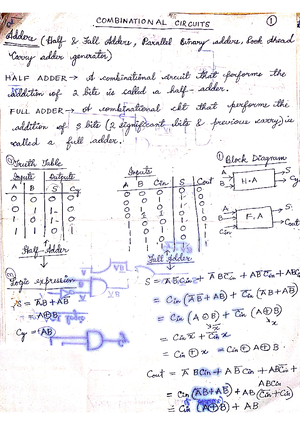 COMBINATIONAL CIRCUITS
①
Adders (Half & Full Adders, Parallel Binary adders, Look Ahead
Carry adder generator)
HALF ADDER → A combinational circuit that performs the
addition of 2 bits is called a half-adder.
FULL ADDER → A combinational ckt that performs the
addition of 3 bits (2 significant bits & previous carry) is
called a full adder.
① Truth Table
Inputs Outputs
A B S Cy
Half-Adder
Inputs
A B Cin S Cout
Full Adder
Block Diagram
A
B
H.A
S
Cy
A
B
Cin
F.A
S
Cout
Logic expression
S = A̅B + AB̅
= A⊕B
Cy = AB
S = A̅B̅Cin + A̅BC̅in + AB̅C̅in + ABCin
= Cin (A̅B̅ + AB) + C̅in (A̅B + AB̅)
= Cin (A⊙B) + C̅in (A⊕B)
= Cin x̅ + C̅in x
= Cin ⊕ x = Cin ⊕ A⊕B
Cout = A̅BCin + AB̅Cin + ABC̅in +
ABCin
= Cin (A̅B + AB̅) + AB (C̅in + Cin)
= Cin (A⊕B) + AB